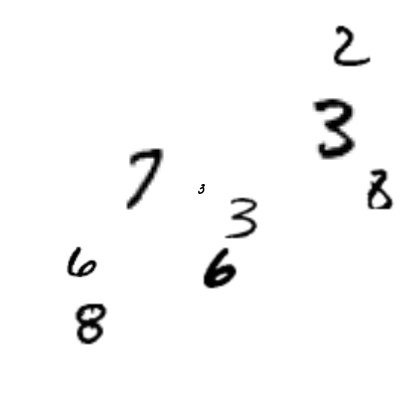 2
3
7 3 8
3
6 6
8